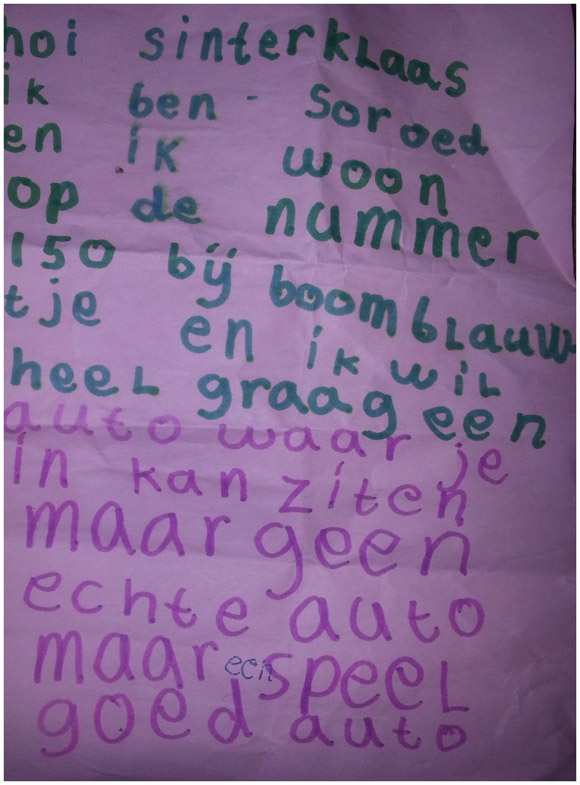 hoi sinterklaas
ik ben - Soroed
en ik woon
op de nummer
150 bij boomblauw-
tje en ik wil
heel graag een
auto waar je
in kan ziten
maar geen
echte auto
maar een speel
goed auto